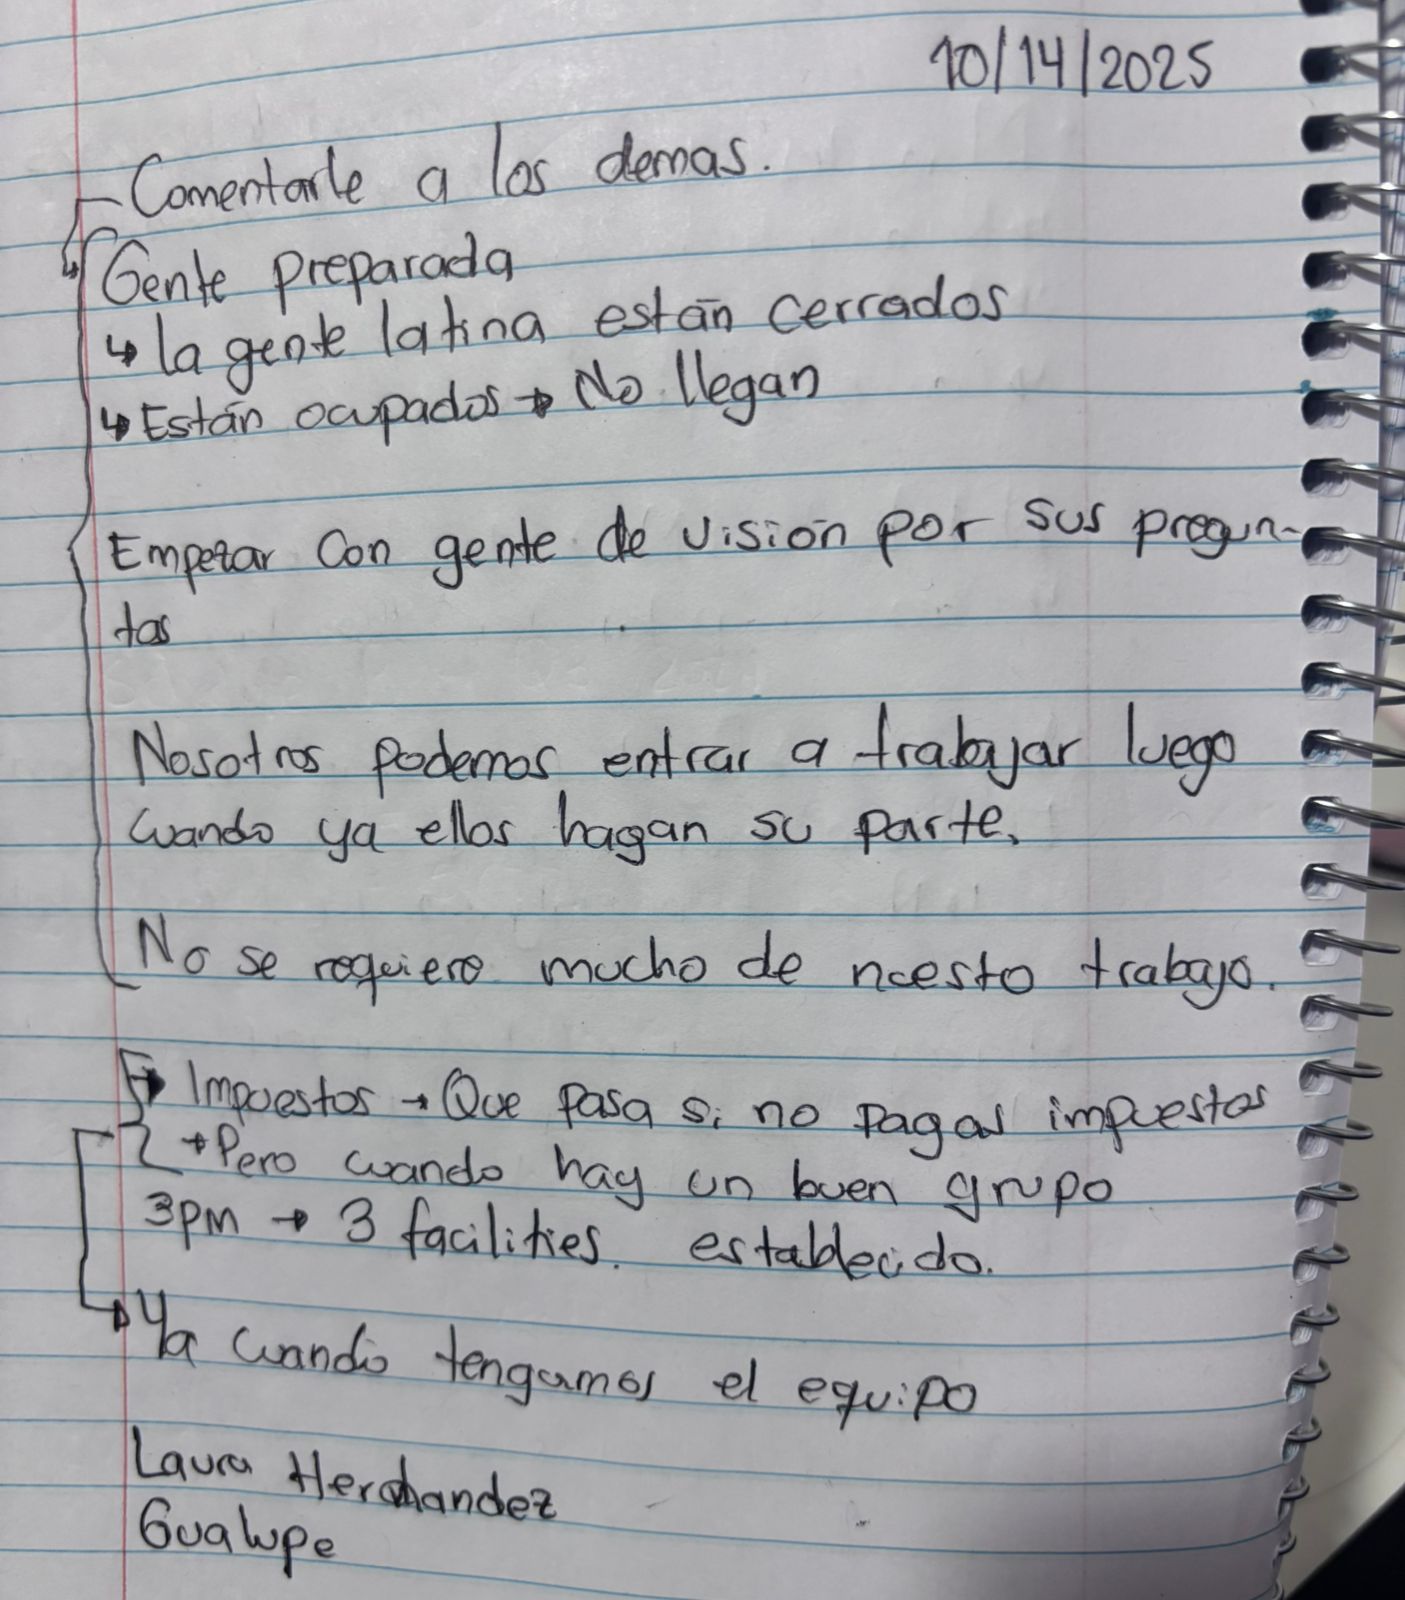 10/14/2025
- Comentarle a los demas.
↳ Gente preparada
↳ la gente latina están cerrados
↳ Están ocupados → No llegan
Empezar Con gente de visión por sus pregun-
tas
Nosotros podemos entrar a trabajar luego
cuando ya ellos hagan su parte.
No se requiere mucho de nuesto trabajo.
→ Impuestos → Que pasa si no pagas impuestos
→ Pero cuando hay un buen grupo
3pm → 3 facilities. establecido.
→ Ya cuando tengamos el equipo
Laura Hernandez
Gualupe